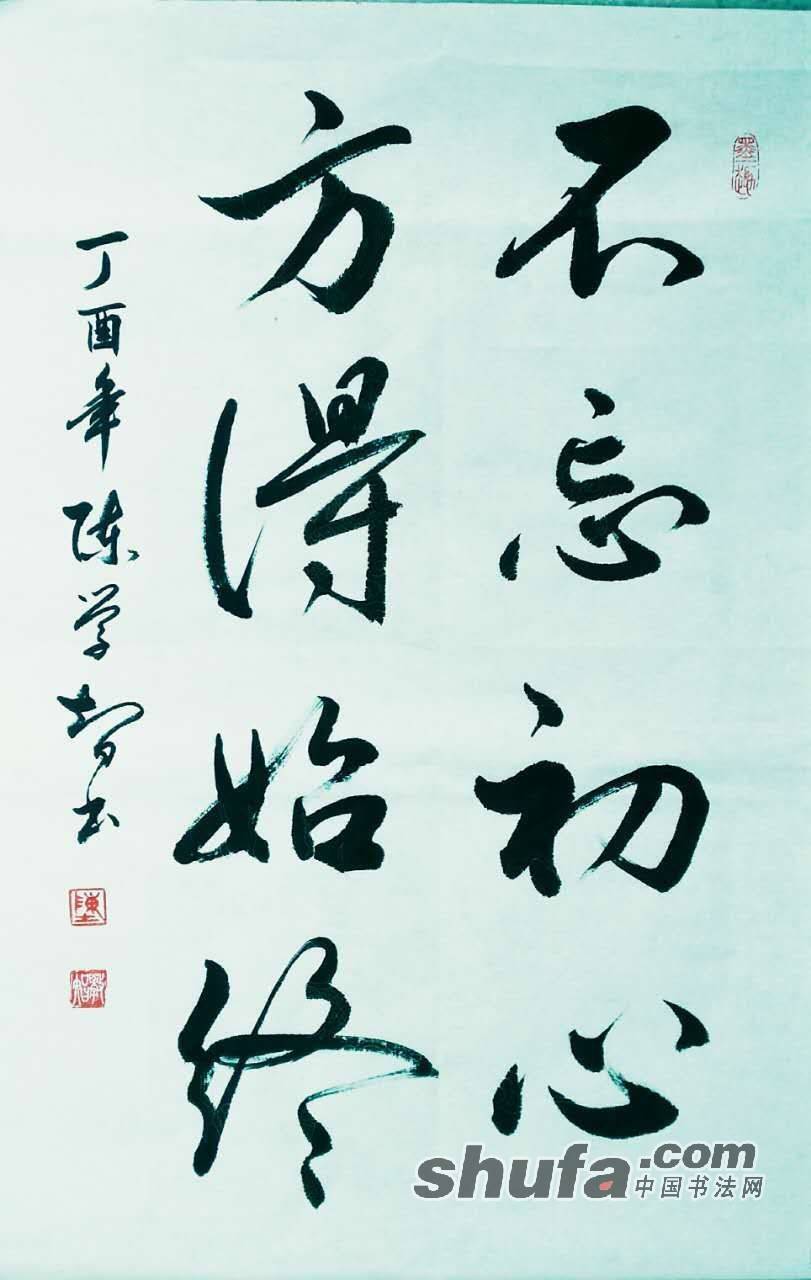 不忘初心
方得始终
丁酉年陈学智书
墨趣
shufa.com
中国书法网